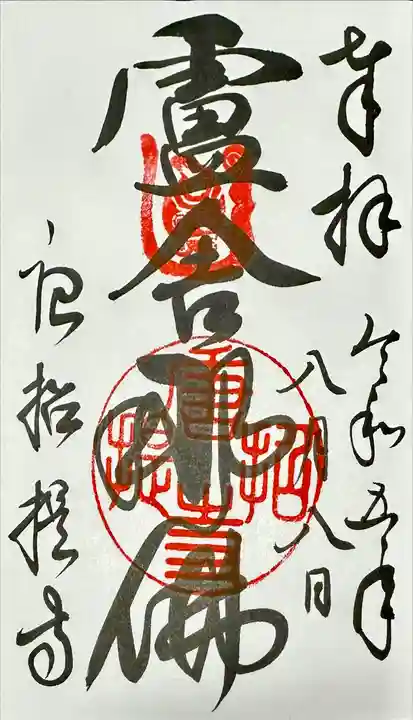 奉拝
令和五年
八月八日
盧舎那佛
唐招提寺